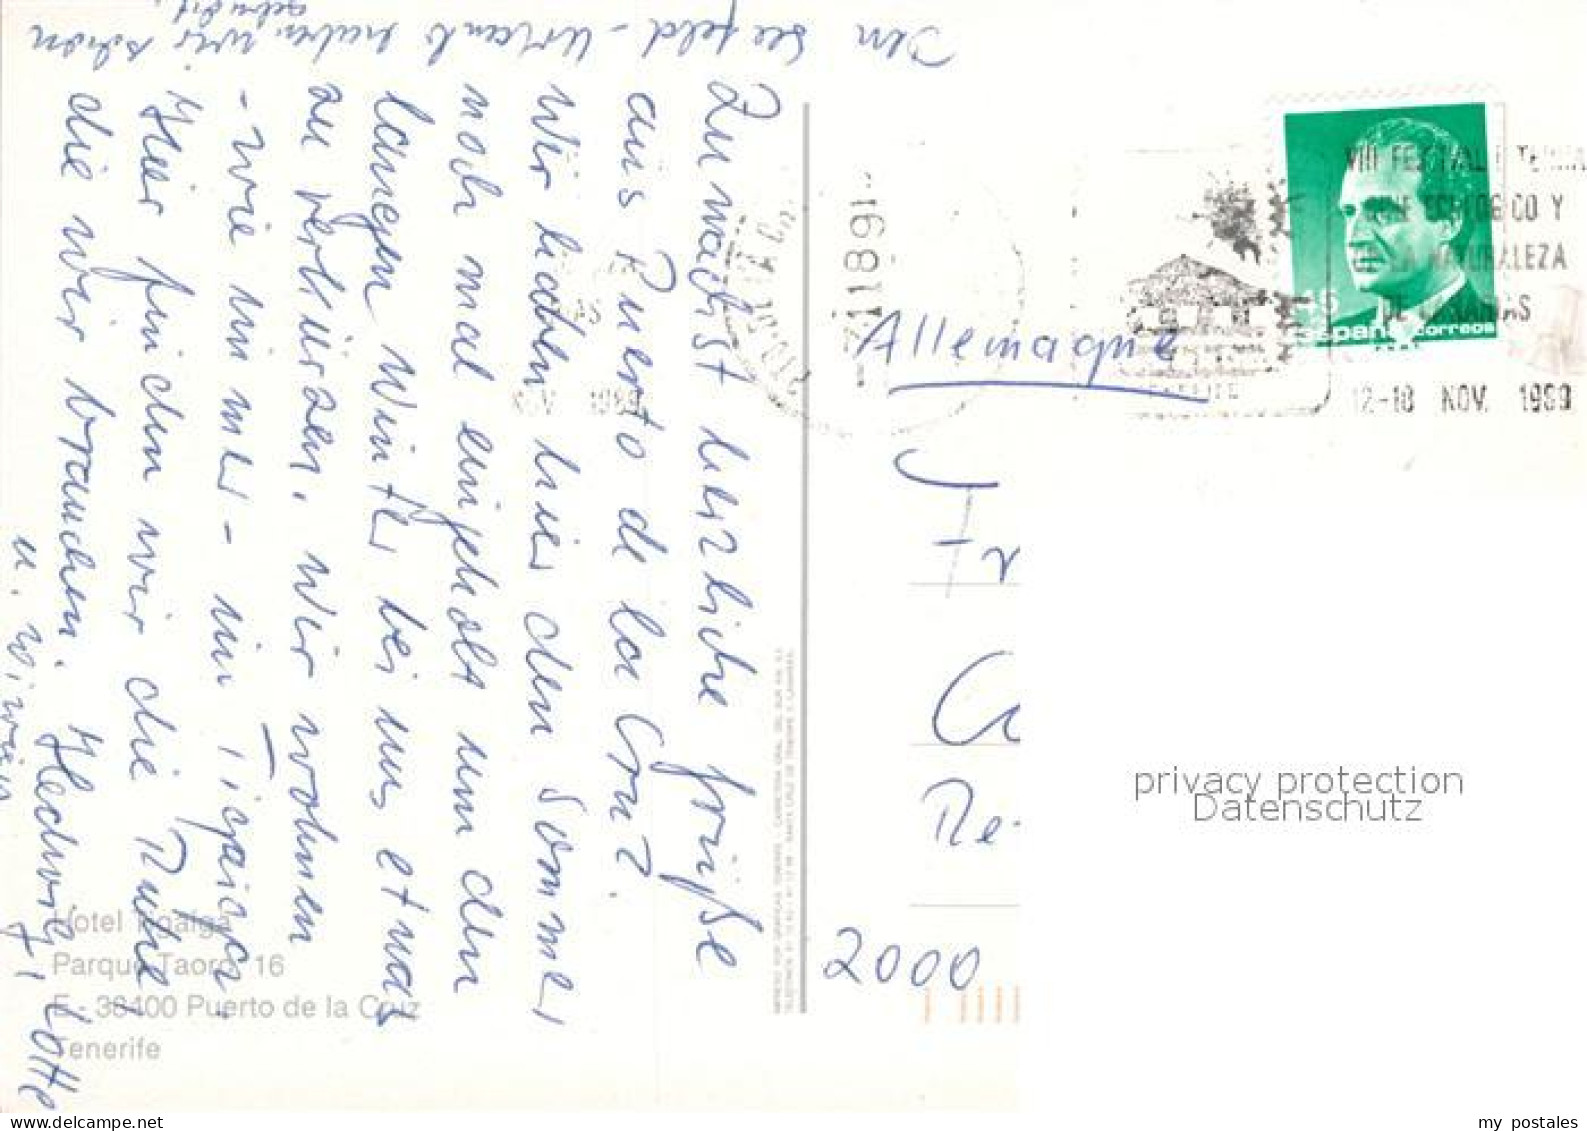 Zunächst herzliche Grüße
aus Puerto de la Cruz.
Wir haben hier den Sommer
noch mal eingeholt um den
langen Winter bei uns etwas
zu verkürzen. Wir wohnen
- wie immer - im Tigaiga.
Hier finden wir die Ruhe,
die wir brauchen. Hedwig, Lotte
u.
Den
Seefeld-Urlaub haben wir schon
gebucht.
Allemagne
Fr
Re-
2000
VIII FESTIVAL
Y
LA NATURALEZA
DE CANARIAS
12-18 NOV. 1989
TENERIFE
España correos
Hotel Tigaiga
Parque Taoro, 16
E - 38400 Puerto de la Cruz
Tenerife
privacy protection
Datenschutz
my postales